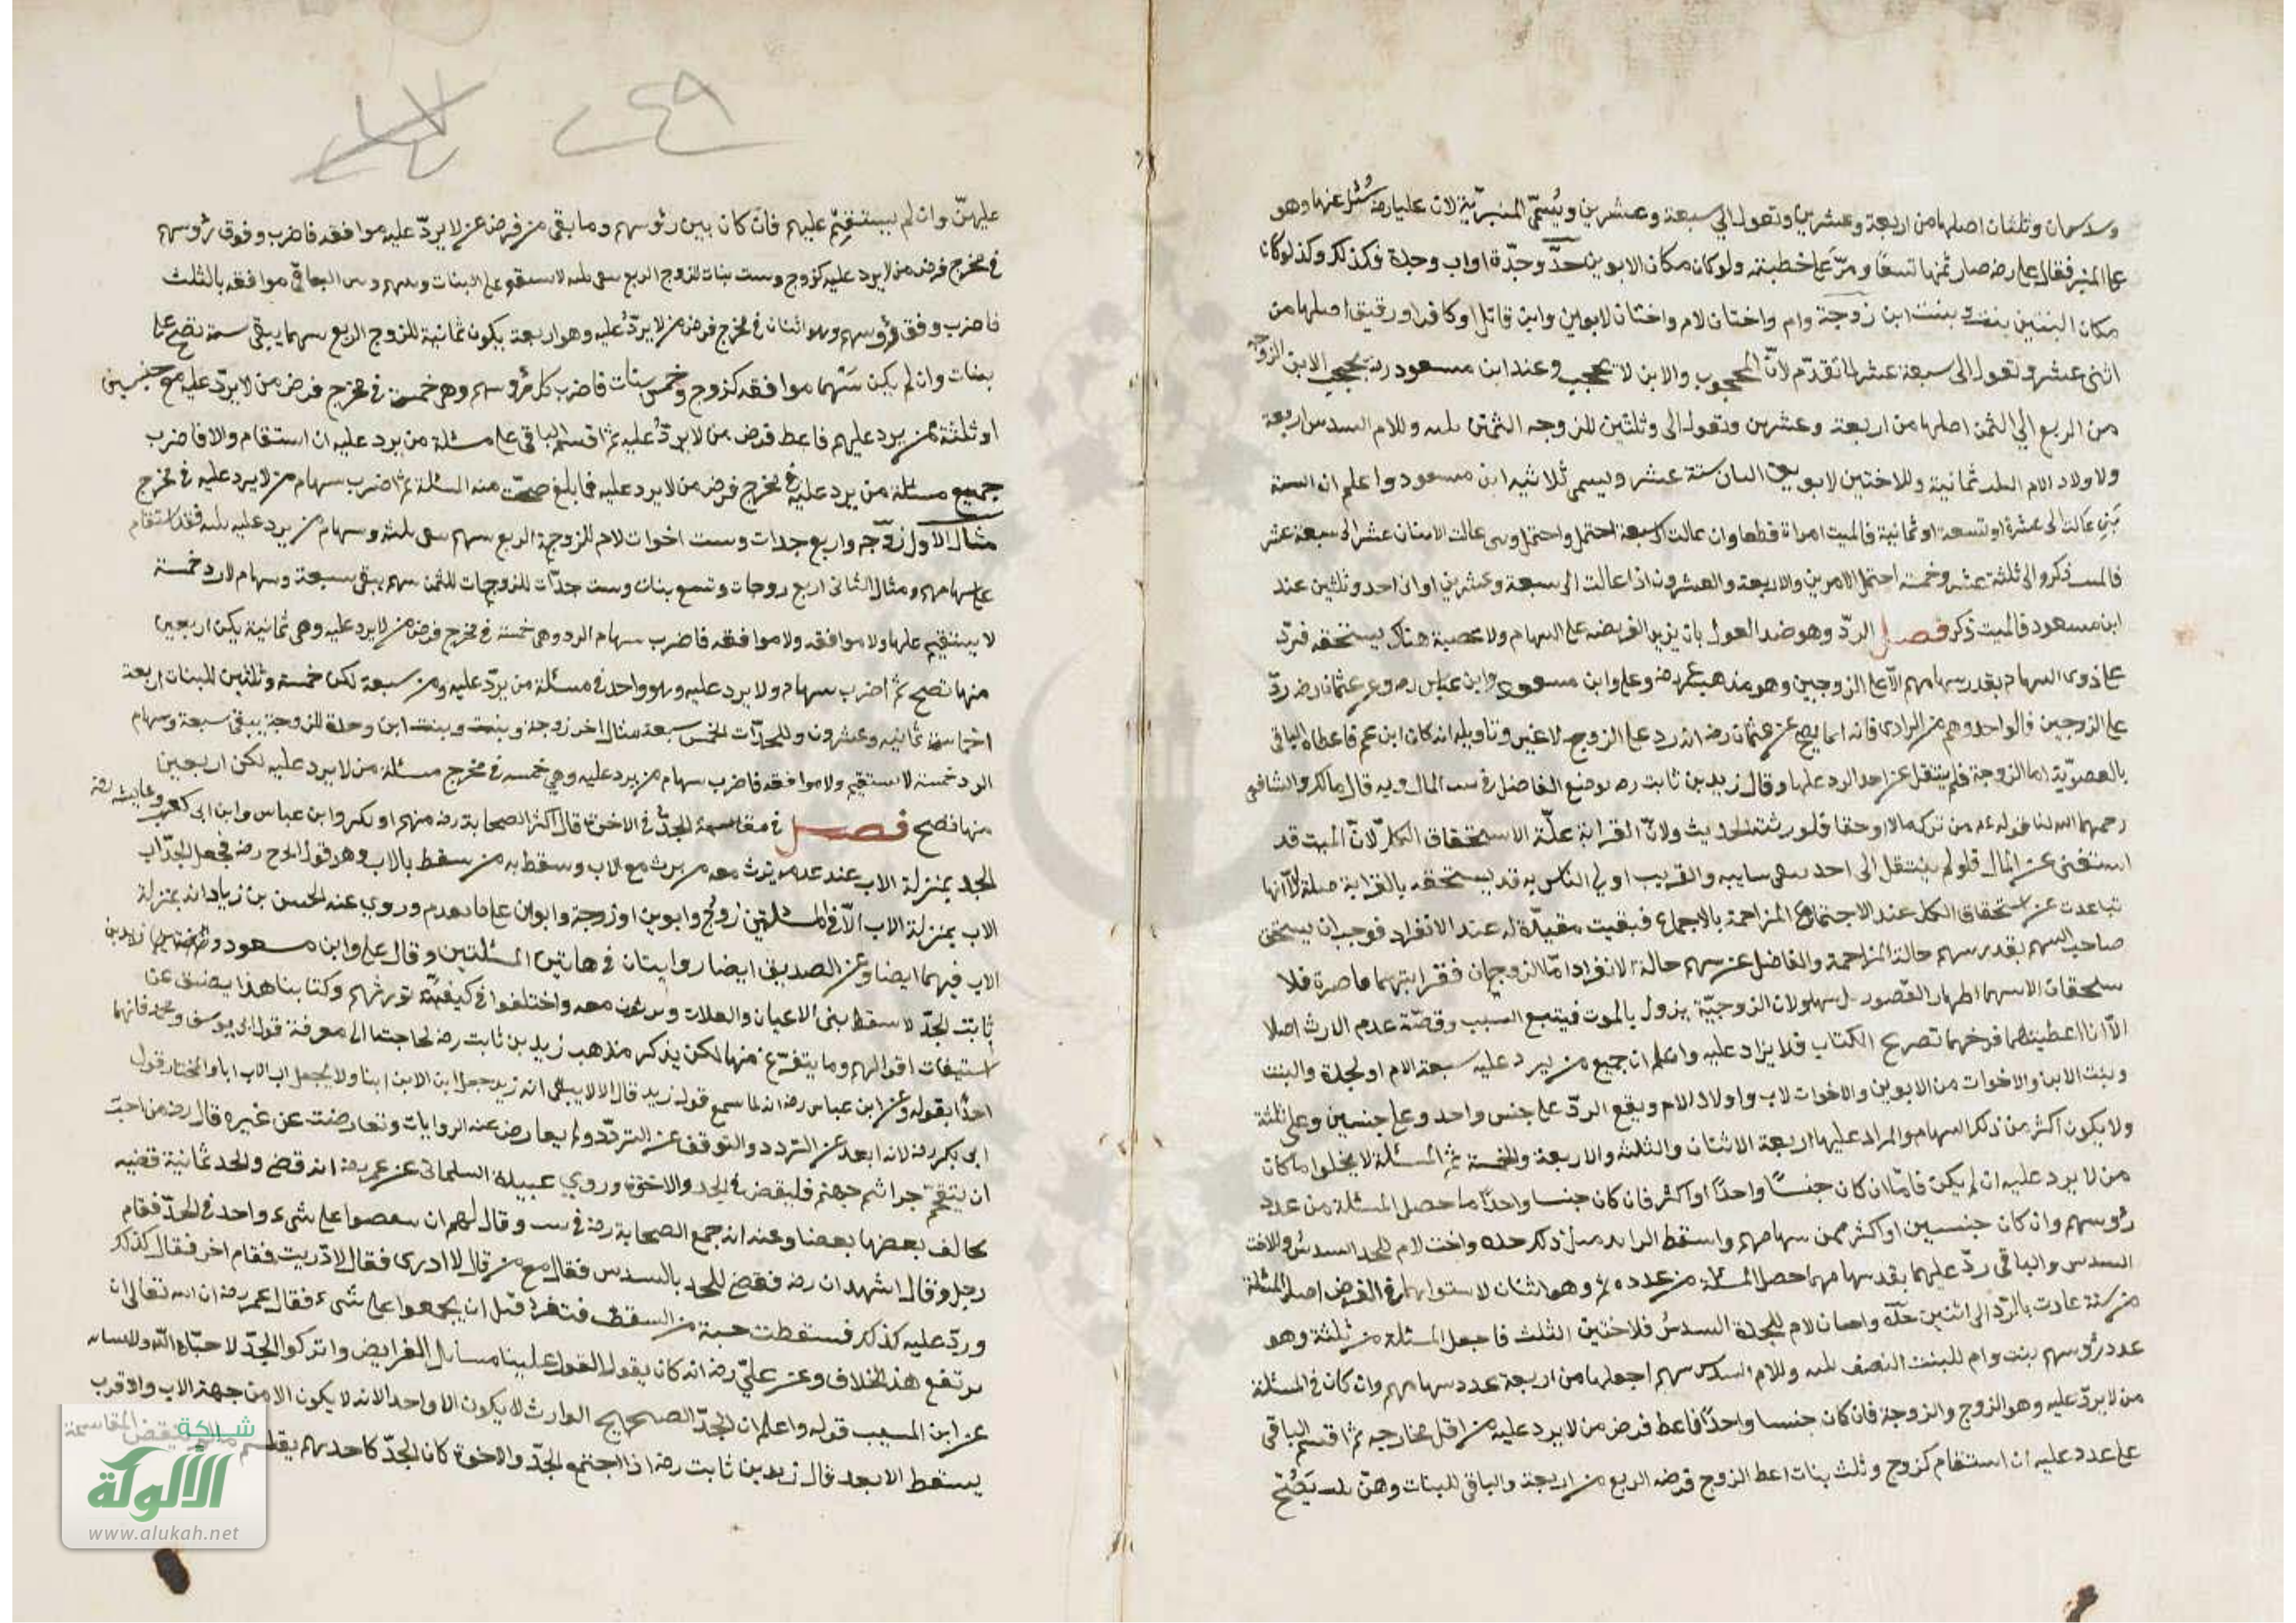 وسدسان وثلثان اصلها من اربعة وعشرين وتعول الى سبعة وعشرين ويُسمّى المنبرّية لان عليا رضه سُئل عنها وهو
على المنبر فقال علي رضه صار ثمنها تسعًا ومرّ على خطبته ولو كان مكان الابوين جدّ وجدّة او اب وجدة فكذلك وكذا لو كان
مكان البنتين بنت وبنت ابن زوجة وام واختان لام واختان لابوين وابن قاتل او كافر او رقيق اصلها من
اثنى عشر وتعول الى سبعة عشر لما تقدّم لانّ المحجوب والابن لا يحجب وعند ابن مسعود رضه يحجب الابن الزوجة
من الربع الي الثمن اصلها من اربعة وعشرين وتعول الى وثلثين للزوجه الثمن ثلثه وللام السدس اربعة
ولاولاد الام الثلث ثمانية وللاختين لابوين الثلثان ستة عشر ويسمى ثلاثينية ابن مسعود واعلم ان الستة
متى عالت الى عشرة او تسعة او ثمانية فالميت امراة قطعا وان عالت الى سبعة احتمل واحتمل ومتى عالت الاثنان عشر الى سبعة عشر
فالميت ذكر والى ثلثة عشر وخمسة احتمل الامرين والاربعة والعشرون اذا عالت الى سبعة وعشرين او الى احد وثلثين عند
ابن مسعود فالميت ذكر فصل الردّ وهو ضد العول بان يزيد الفريضه على السهام ولا عصبة هناك يستحقه فيردّ
على ذوى السهام بقدر سهامهم الّا على الزوجين وهو مذهب عمر رضه وعلي وابن مسعود وابن عباس رضه وعن عثمان رضه ردّ
على الزوجين قالوا احد وهم من الراوى فانه انما يصح عن عثمان رضه انه رد على الزوج لا غير وتاويله انه كان ابن عم فاعطاه الباقي
بالعصوبّة اما الزوجة فلم ينقل عن احد الرد عليها وقال زيد بن ثابت رضه يوضع الفاضل في بيت المال وبه قال مالك والشافعي
رحمهما الله لنا قوله عم من ترك مالا او حقا فلورثته الحديث ولانّ القرابة علّة الاستحقاق الكلّ لانّ الميت قد
استغنى عن المال فلو لم ينتقل الى احد يبقى سايبه والقريب اولي الناس به قد يستحقه بالقرابة صلة الّا انها
تباعدت عن استحقاق الكل عند الاجتماع المزاحمة بالاجماع فبقيت مقيّدة له عند الانفراد فوجب ان يستحق
صاحب السهم بقدر سهم حالة المزاحمة والفاضل عن سهم حالة الانفراد امّا الزوجان فقرابتهما قاصرة فلا
يستحقان الا سهمهما اظهارا لقصور سهمهما ولان الزوجيّة يزول بالموت فينتفع السبب وقصّة عدم الارث اصلا
الّا انا اعطيناهما فرضهما تصريح الكتاب فلا يزاد عليه واعلم ان جميع من يرد عليه سبعة الام او لجدة والبنت
وبنت الابن والاخوات من الابوين والاخوات لاب واولاد الام ويقع الردّ على جنس واحد وعلى جنسين وعلى ثلثة
ولا يكون اكثر من ذلك السهام والمراد عليها اربعة الاثنان والثلثة والاربعة والخمسة ثم المسئلة لا يخلوا ما كان
من لا يرد عليه ان لم يكن فامّا ان كان جنسًا واحدًا او اكثر فان كان جنسا واحدًا ما حصل المسئلة من عدد
رؤسهم وان كان جنسين او اكثر فمن سهامهم واسقط الزائد مثال ذلك جده واخت لام للجد السدس وللاخت
السدس والباقي ردّ عليهما بقدر سهامهما حصل المسئلة من عدده ثم وهو اثنان لاستوائهما في الفرض اصل المسئلة
من ستة عادت بالردّ الى اثنين جدّة واختان لام للجدة السدسُ فلاختين الثلث فاجعل المسئلة من ثلثة وهو
عدد رؤسهم بنت وام للبنت النصف ثلثه وللام السدس سهم اجعلها من اربعة عدد سهامهم وان كان في المسئلة
من لا يردّ عليه وهو الزوج والزوجة فان كان جنسا واحدًا فاعط فرض من لا يرد عليه من اقل مخارجه ثم اقسم الباقي
على عدد عليه ان استقام كزوج وثلث بنات اعط الزوج فرضه الربع من اربعة والباقي للبنات وهنّ ثلث يَصُحّ
عليهنّ وان لم يستقيم عليهم فان كان بين رئوسهم وما بقى من فرض عن لا يردّ عليه موافقة فاضرب وفوق رؤسهم
في مخرج فرض من لا يرد عليه كزوج وست بنات للزوج الربع بقى ثلثه لا يستقيم على البنات وبينهم وبين الباقي موافقه بالثلث
فاضرب وفق رؤسهم وهو اثنان في مخرج فرض من لا يردّ عليه وهو اربعة يكون ثمانية للزوج الربع سهما يبقى ستة تصح على
بنات وان لم يكن بينهما موافقه كزوج وخمس بنات فاضرب كل رؤسهم وهي خمسة في مخرج فرض من لا يردّ عليه مع جنسين
او ثلثة ممن يرد عليهم فاعط فرض من لا يردُّ عليه ثم اقسم الباقي على مسئلة من يرد عليه ان استقام والا فاضرب
جميع مسئلة من يرد عليه في مخرج فرض من لا يرد عليه فما بلغ صحت منه المسئلة ثم اضرب سهام من لا يرد عليه في مخرج
مثال الاول زوجه واربع جدات وست اخوات لام للزوجة الربع سهم بقى ثلثه وسهام من يرد عليه ثلثه فقد استقام
على سهامهم ومثال الثانى اربع زوجات وتسع بنات وست جدّات للزوجات الثمن سهم يبقى سبعة وسهام لارد خمسة
لا يستقيم عليها ولا موافقه ولا موافقه فاضرب سهام الرد وهي خمسة في مخرج فرض من لا يرد عليه وهي ثمانية يكن اربعين
منها تصح ثم اضرب سهام ولا يرد عليه وهو واحد في مسئلة من يردّ عليه ومن سبعة لكن خمسة وثلثين للبنات اربعة
اخماسه ثمانيه وعشرون وللجدّات الخمس سبعة مثال اخر زوجة وبنت وبنت ابن وجدة للزوجة يبقى سبعة وسهام
الرد خمسة لا يستقيم ولا موافقه فاضرب سهام من يرد عليه وهي خمسه في مخرج مسئلة من لا يرد عليه لكن اربعين
منها تصح فصل في مقاسمة الجدّ في الاخوة قال اكثر الصحابة رضه منهم ابو بكر وابن عباس وابن ابى كعب وعايشه رضه
الجد بمنزلة الاب عند عدمه يرث معه من يرث مع الاب وسقط به من سقط بالاب وهو قول ابى ح رضه فجعل الجدّاب
الاب بمنزلة الاب الّا في المسئلتين زوج وابوين او زوجة وابوان على ما تقدم وروي عنه الحسن بن زياد انه بمنزلة
الاب فيهما ايضا وعن الصديق ايضا روايتان في هاتين المسئلتين وقال علي وابن مسعود وزيد بن
ثابت الجدّ لا يسقط بنى الاعيان والعلات ويرثون معه واختلفوا في كيفيّة توريثهم وكتابنا هذا يضيق عن
استيفات اقوالهم وما يتفرّع منها لكن يذكر مذهب زيد بن ثابت رضه لحاجتنا الى معرفة قول ابى يوسف ومحمد فانهما
اخذا بقوله وعن ابن عباس رضه انه لما سمع قول زيد قال الا لا يبقى الله زيد جعل ابن الابن ابنا ولا يجعل اب الاب ابا والمختار قول
ابى بكر رضه لانه ابعد عن التردد والتوقف عن التردّد ولم يعارض عنه الروايات وتعارضت عن غيره قال رضه من احبّ
ان يتقحّم جراثيم جهنم فليقض في الجد والاخوة وروي عبيدة السلمانى عن عمر رضه انه قضى والجد ثمانية قضيه
يخالف بعضها بعضا وعنه انه جمع الصحابة رضه في بيت وقال لهم ان تعصوا على شىء واحد في الجدّ فقام
رجل وقال اشهد ان رضه فقضى للجد بالسدس فقال مع من قال لا ادرى فقال لا دريت فقام اخر فقال كذلك
وردّ عليه كذلك فسقطت حية من السقف فتفرقوا قبل ان يجمعوا على شىء فقال عمر رضه ان الله تعالى ان
يرتفع هذا الخلاف وعن عليّ رضه انه كان يقول القول علينا مسائل الفرايض واتركوا الجدّ لا حيّاه الله
عن ابن المسيب قوله واعلم ان الجدّ الصحيح الوارث لا يكون الا واحد الانه لا يكون الا من جهة الاب والاقرب
يسقط الابعد قال زيد بن ثابت رضه اذا اجتمع الجدّ والاخوة كان الجدّ كاحدهم يقاسم ما لم ينقض المقاسمة
شبكة
الألوكة
www.alukah.net